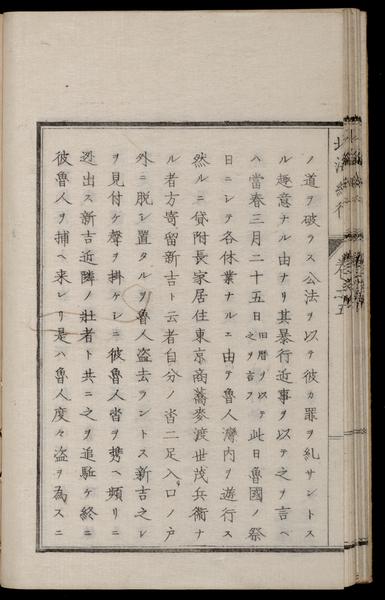 ノ道ヲ破ラス公法ヲ以テ彼カ罪ヲ糺サントス
ル趣意ナル由ナリ其暴行近事ヲ以テ之ヲ言ヘ
ハ當春三月二十五日旧暦ヲ以テ之ヲ言フ此日魯國ノ祭
日ニシテ各休業ナルニ由テ魯人灣内ヲ遊行ス
然ルニ貸附長家居住東京商蕎麥渡世茂兵衛ナ
ル者方寄留新吉ト云者自分ノ沓二足入口ノ戸
外ニ脱シ置タルヲ魯人盗去ラントス新吉之レ
ヲ見付ケ聲ヲ掛ケレニ彼魯人沓ヲ携ヘ頻リニ
逃出ス新吉近隣ノ壮者ト共ニ之ヲ追駈ケ終ニ
彼魯人ヲ捕ヘ来レリ是ハ魯人度々盗ヲ為スニ
北海紀行